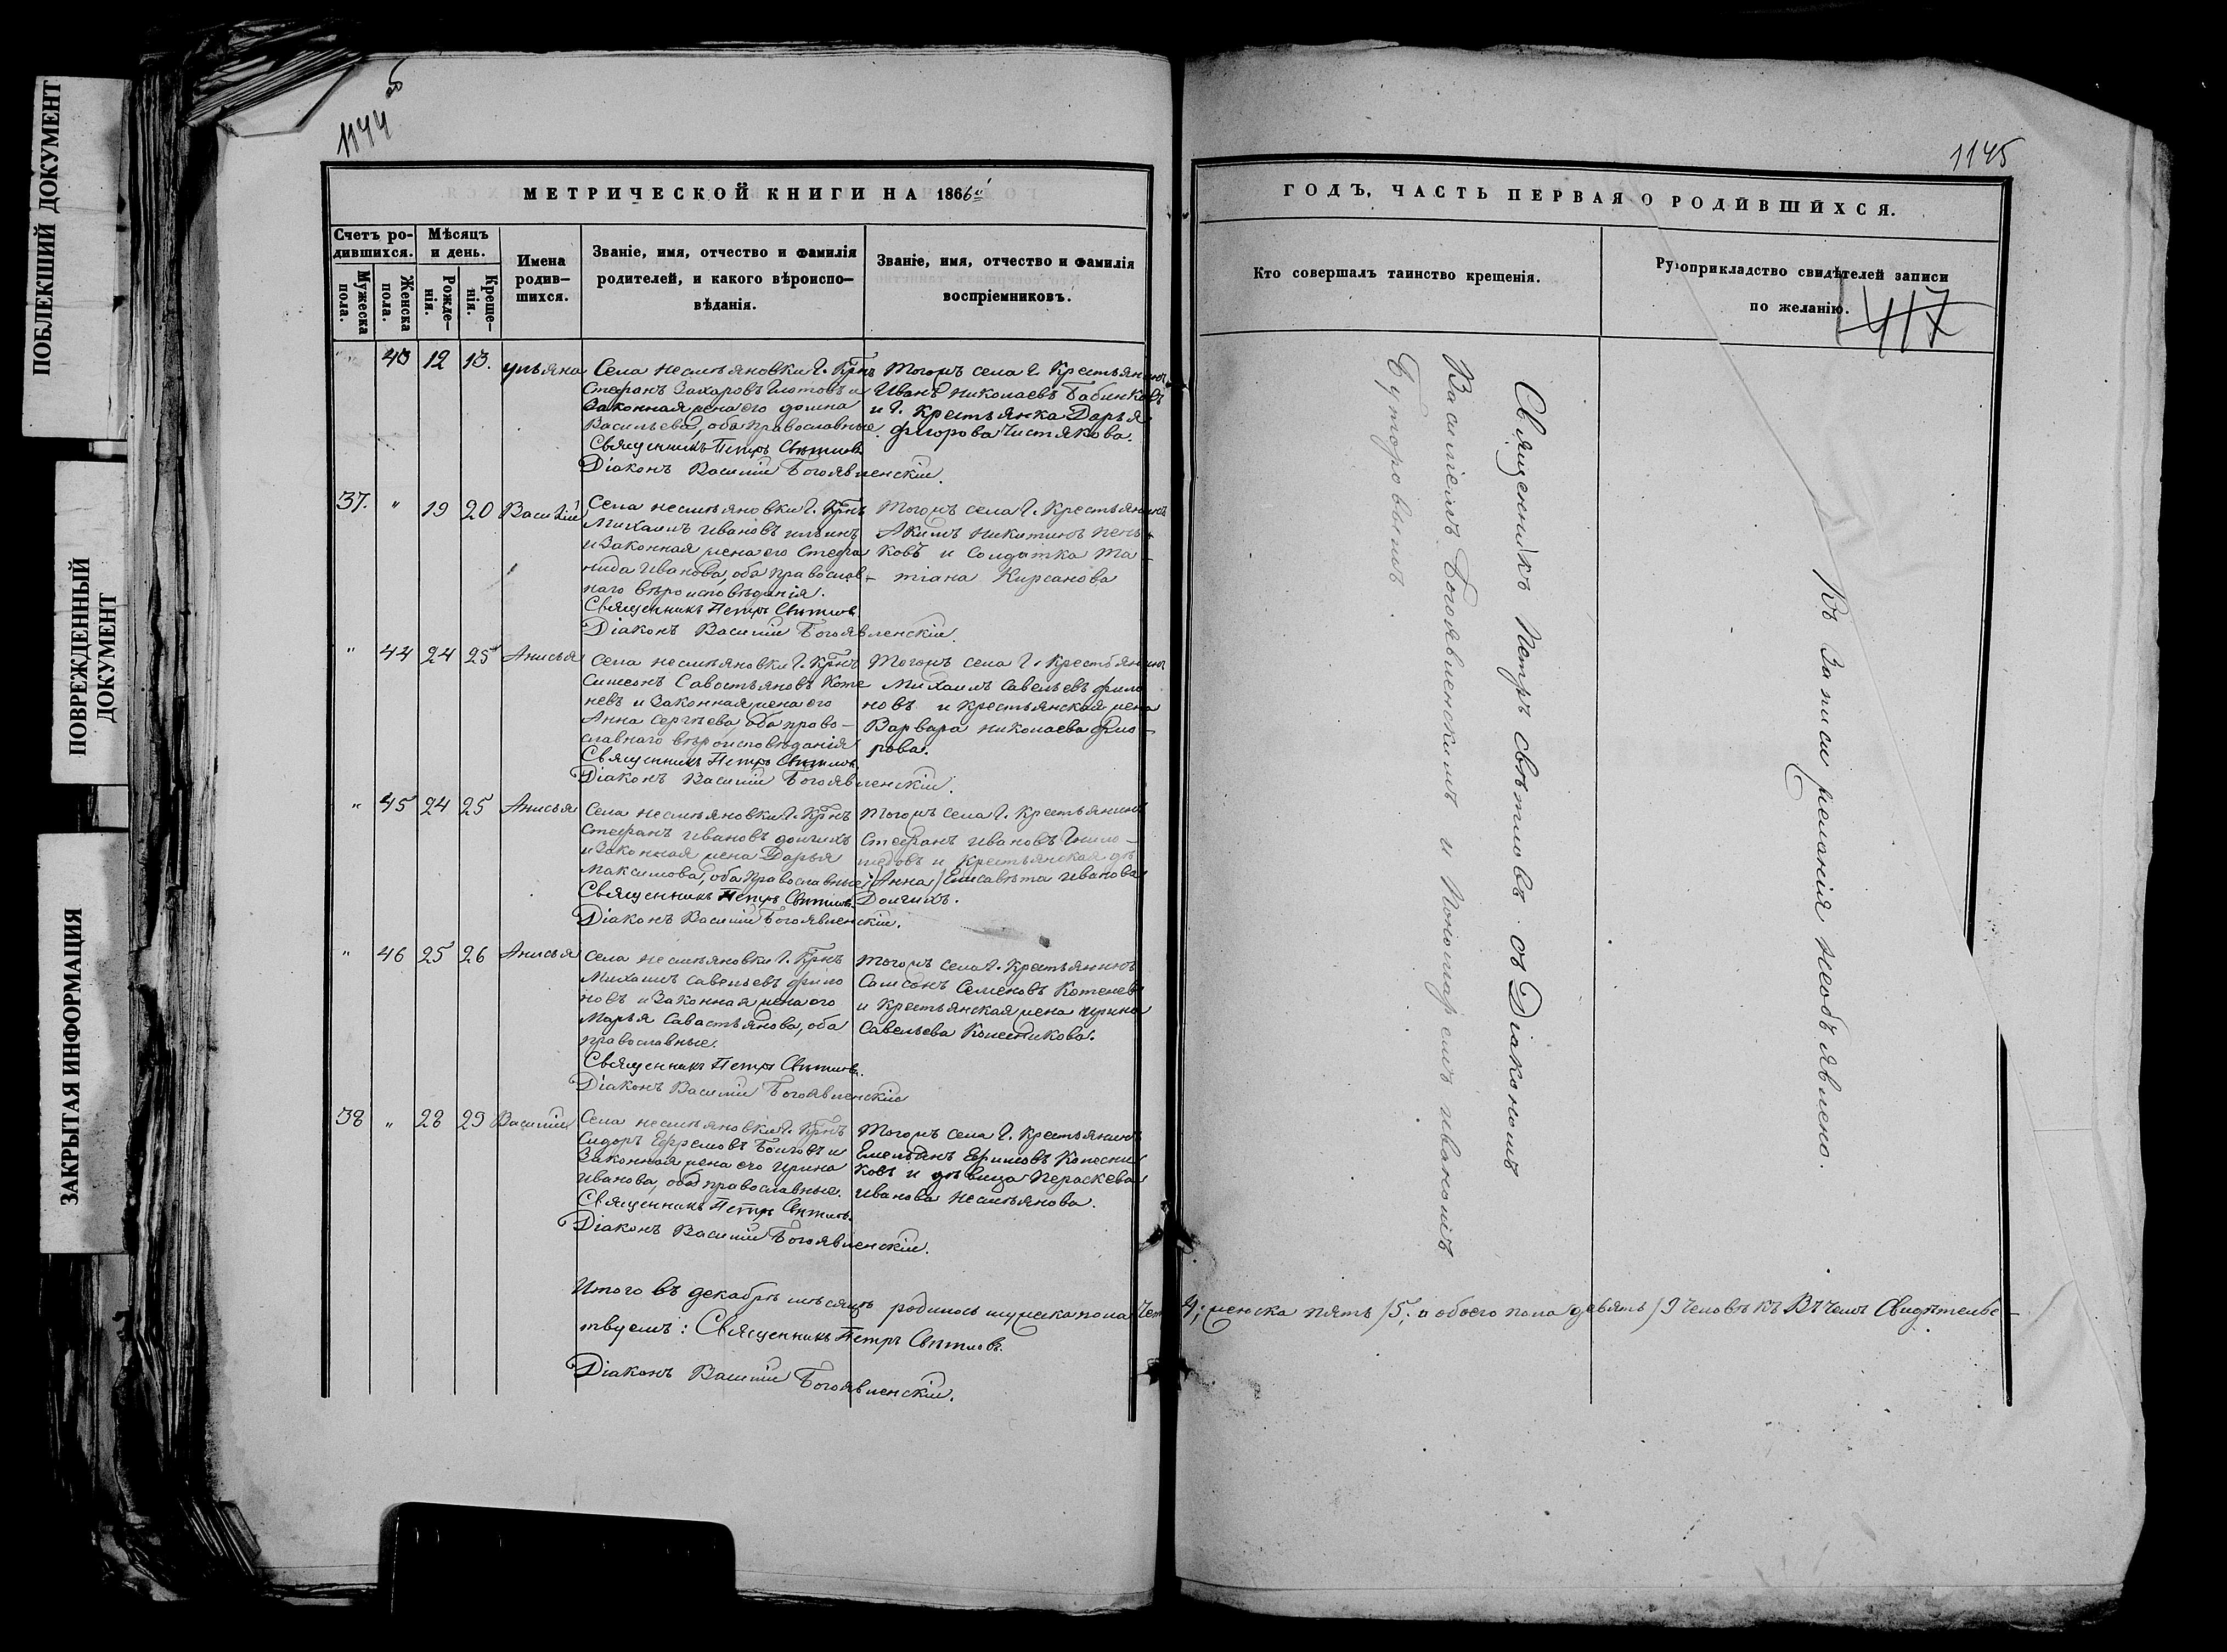 ПОБЛЕКШИЙ ДОКУМЕНТ
ПОВРЕЖДЕННЫЙ
ДОКУМЕНТ
ЗАКРЫТАЯ ИНФОРМАЦИЯ
1144
МЕТРИЧЕСКОЙ КНИГИ НА 1866й
Счетъ ро-
дившихся.
Мужеска
пола.
Женска
пола.
Мѣсяцъ
и день.
Рожде-
нія.
Креще-
нія.
Имена
родив-
шихся.
Званіе, имя, отчество и фамилія
родителей, и какого вѣроиспо-
вѣданія.
Званіе, имя, отчество и фамилія
воспріемниковъ.
" 43 12 13. Ульяна
Села Несмѣяновки Г. Крнъ
Стефанъ Захаровъ и
Законная жена его Домна
Васильева, оба православные
Священникъ Петръ Свѣтловъ
Діаконъ Василій Богоявленскій.
Тогожъ села Г. Крестьянинъ
Иванъ Николаевъ Бабинковъ
и Г. Крестьянка Дарья
Чистякова.
37. " 19 20 Василій
Села Несмѣяновки Г. Крнъ
Михаилъ Ивановъ Ильинъ
и Законная жена его Стефа
нида Иванова, оба православ-
наго вѣроисповѣданія.
Священникъ Петръ Свѣтловъ
Діаконъ Василій Богоявленскій.
Тогожъ села Г. Крестьянинъ
Акимъ Никитинъ Пень-
ковъ и Солдатка Та-
тіана Кирсанова
" 44 24 25 Анисья
Села Несмѣяновки Г. Крнъ
Симеонъ Савостьяновъ Коте
невъ и Законная жена его
Анна Сергѣева, оба право-
славнаго вѣроисповѣданія
Священникъ Петръ Свѣтловъ
Діаконъ Василій Богоявленскій.
Тогожъ села Г. Крестьянинъ
Михаилъ Савельевъ Фило
новъ и Крестьянская жена
Варвара Николаева
" 45 24 25 Анисья
Села Несмѣяновки Г. Крнъ
Стефанъ Ивановъ Долгихъ
и Законная жена Дарья
Максимова, оба Православные
Священникъ Петръ Свѣтловъ
Діаконъ Василій Богоявленскій.
Тогожъ села Г. Крестьянинъ
Стефанъ Ивановъ
и Крестьянская дѣ
/Анна/ Елисавѣта Иванова
Долгихъ.
" 46 25 26 Анисья
Села Несмѣяновки Г. Крнъ
Михаилъ Савельевъ Фило
новъ и Законная жена его
Марья Савастьянова, оба
православные.
Священникъ Петръ Свѣтловъ.
Діаконъ Василій Богоявленскій
Тогожъ села Г. Крестьянинъ
Самсонъ Семеновъ Котеневъ
и Крестьянская жена Ирина
Савельева Колесникова.
38 " 28 29 Василій
Села Несмѣяновки Г. Крнъ
Сидоръ Ефремовъ Болговъ и
Законная жена его Ирина
Иванова, оба православные.
Священникъ Петръ Свѣтловъ.
Діаконъ Василій Богоявленскій.
Тогожъ села Г. Крестьянинъ
Емельянъ Ефимовъ Колесни
ковъ и дѣвица Пераскева
Иванова Несмѣянова.
Итого въ декабрѣ мѣсяцѣ родилось мужска пола Чет 4; женска пять /5; а обоего пола девять /9 Человѣкъ Въ чемъ Свидѣтельс-
твуемъ: Священникъ Петръ Свѣтловъ.
Діаконъ Василій Богоявленскій.
1145
ГОДЪ, ЧАСТЬ ПЕРВАЯ О РОДИВШИХСЯ.
Кто совершалъ таинство крещенія.
Рукоприкладство свидѣтелей записи
по желанію.
417
Священникъ Петръ Свѣтловъ съ Діакономъ
Василіемъ Богоявленскимъ и Пономаремъ Иваномъ
Буторовымъ.
Къ записи желанія необъявлено.